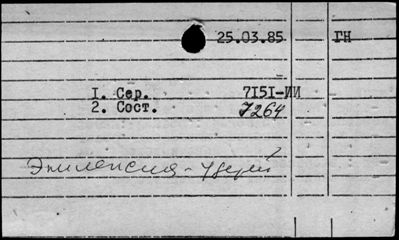 25.03.85 ГН
1. Сер. 7151-ИИ
2. Сост. 7264
Эпилепсия -